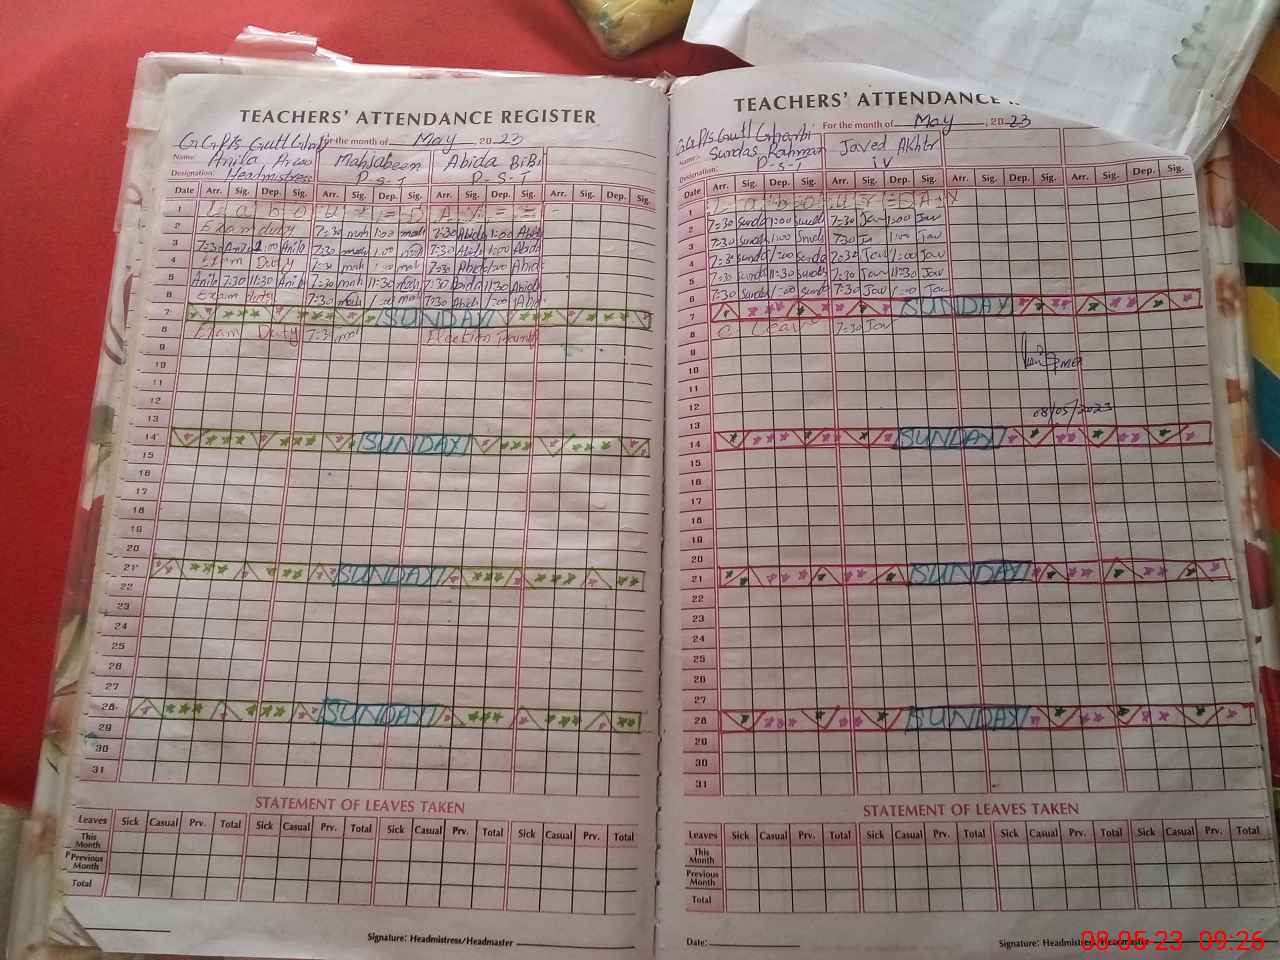 TEACHERS' ATTENDANCE REGISTER
For the month of May 2023
Name: Anila Mahjabeen Abida BiBi
Designation: Headmistress P-S-T P-S-T
Date Arr. Sig. Dep. Sig. Arr. Sig. Dep. Sig. Arr. Sig. Dep. Sig. Arr. Sig. Dep. Sig.
1 L a b o u r = D A Y = =
2 Exam duty 7:30 mah 1:00 mah 7:30 Abida 1:00 Abid
3 7:30 Anila 1:00 Anila 7:30 mah 1:00 mah 7:30 Abida 1:00 Abida
4 Exam Duty 7:30 mah 1:00 mah 7:30 Abida 1:00 Abid
5 Anila 7:30 11:30 Anila 7:30 mah 11:30 mah 7:30 Abida 11:30 Abida
6 Exam duty 7:30 mah 1:00 mah 7:30 Abida 1:00 Abid
7 SUNDAY
8 Exam Duty 7:30 mah Election Training
9
10
11
12
13
14 SUNDAY
15
16
17
18
19
20
21 SUNDAY
22
23
24
25
26
27
28 SUNDAY
29
30
31
STATEMENT OF LEAVES TAKEN
Leaves Sick Casual Prv. Total Sick Casual Prv. Total Sick Casual Prv. Total Sick Casual Prv. Total
This Month
Previous Month
Total
Signature: Headmistress/Headmaster
TEACHERS' ATTENDANCE
For the month of May, 2023
Name: Sundas Rahman Javed Akhtr
Designation: P-S-T iv
Date Arr. Sig. Dep. Sig. Arr. Sig. Dep. Sig. Arr. Sig. Dep. Sig. Arr. Sig. Dep. Sig.
1 L a b o u r = D A Y
2 7:30 Sunda 1:00 Sunda 7:30 Jav 1:00 Jav
3 7:30 Sunda 1:00 Sunda 7:30 Jav 1:00 Jav
4 7:30 Sunda 1:00 Sunda 7:30 Jav 1:00 Jav
5 7:30 Sunda 11:30 Sunda 7:30 Jav 11:30 Jav
6 7:30 Sunda 1:00 Sunda 7:30 Jav 1:00 Jav
7 SUNDAY
8 C Leave 7:30 Jav
9
10
11
12
08/05/2023
13
14 SUNDAY
15
16
17
18
19
20
21 SUNDAY
22
23
24
25
26
27
28 SUNDAY
29
30
31
STATEMENT OF LEAVES TAKEN
Leaves Sick Casual Prv. Total Sick Casual Prv. Total Sick Casual Prv. Total Sick Casual Prv. Total
This Month
Previous Month
Total
Date: Signature: Headmistress/Headmaster
08-05-23 09:26